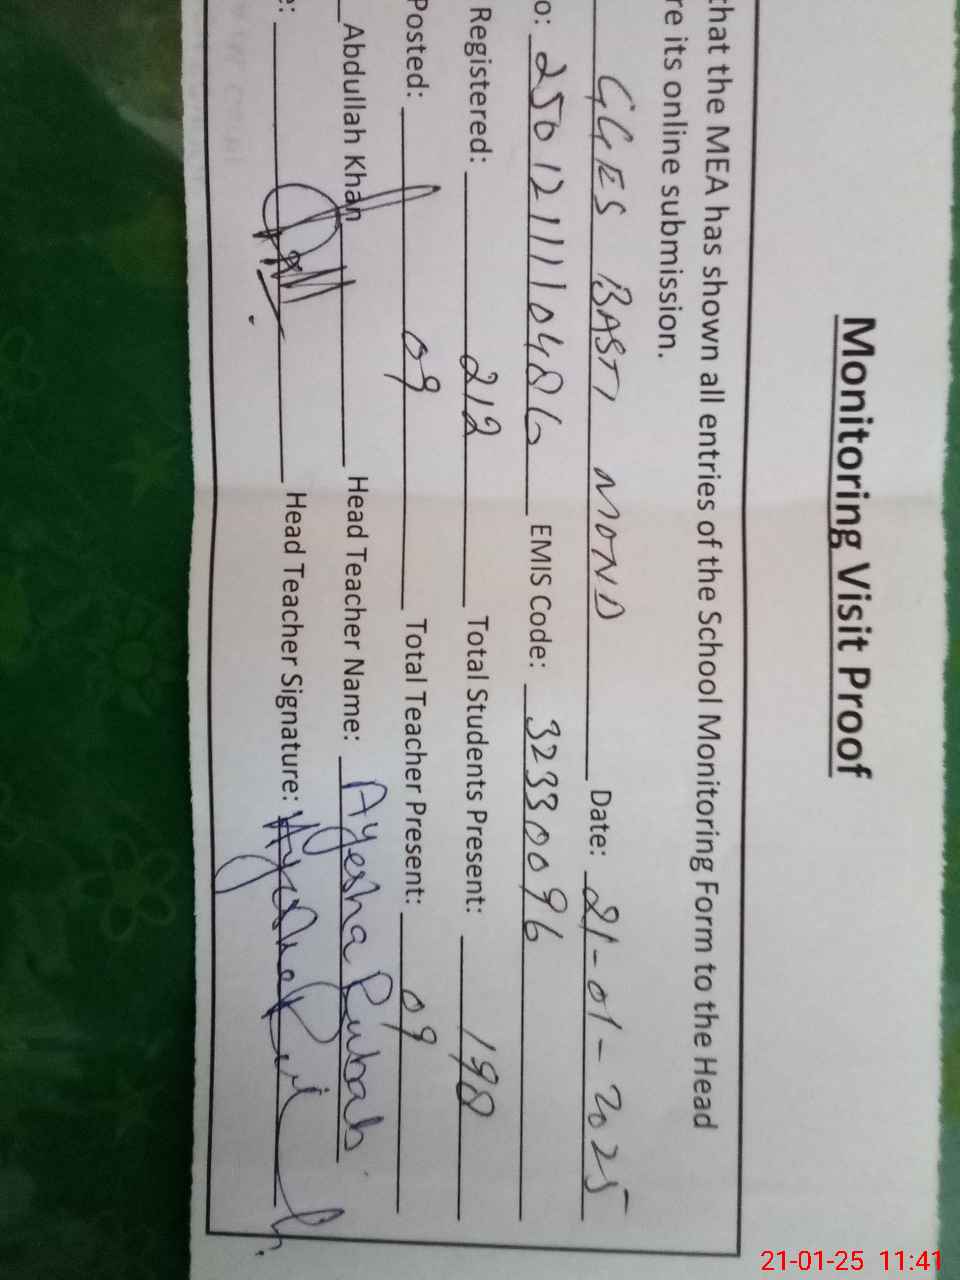 Monitoring Visit Proof
that the MEA has shown all entries of the School Monitoring Form to the Head
re its online submission.
GGES BASTI MOND Date: 21-01-2025
o: 2501211110486 EMIS Code: 32330096
Registered: 212 Total Students Present: 198
Posted: 09 Total Teacher Present: 09
Abdullah Khan Head Teacher Name: Ayesha Rubab
e: Head Teacher Signature:
21-01-25 11:41